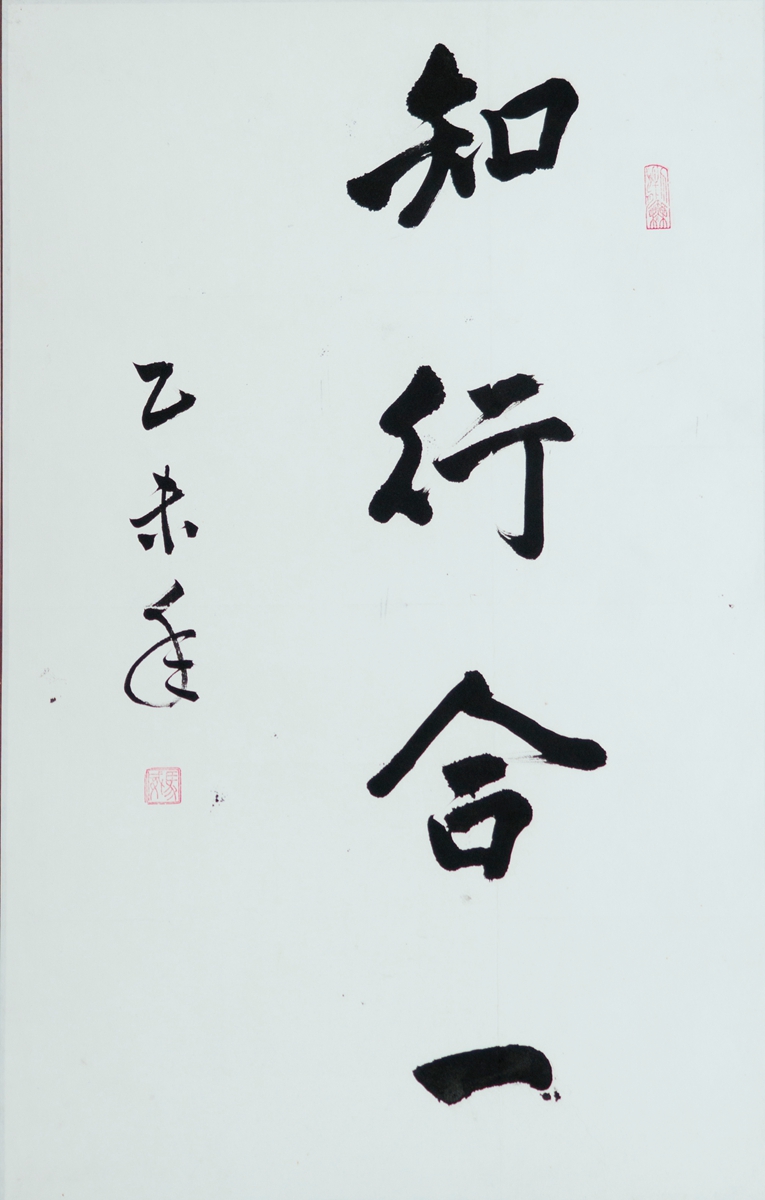 知行合一
乙未年